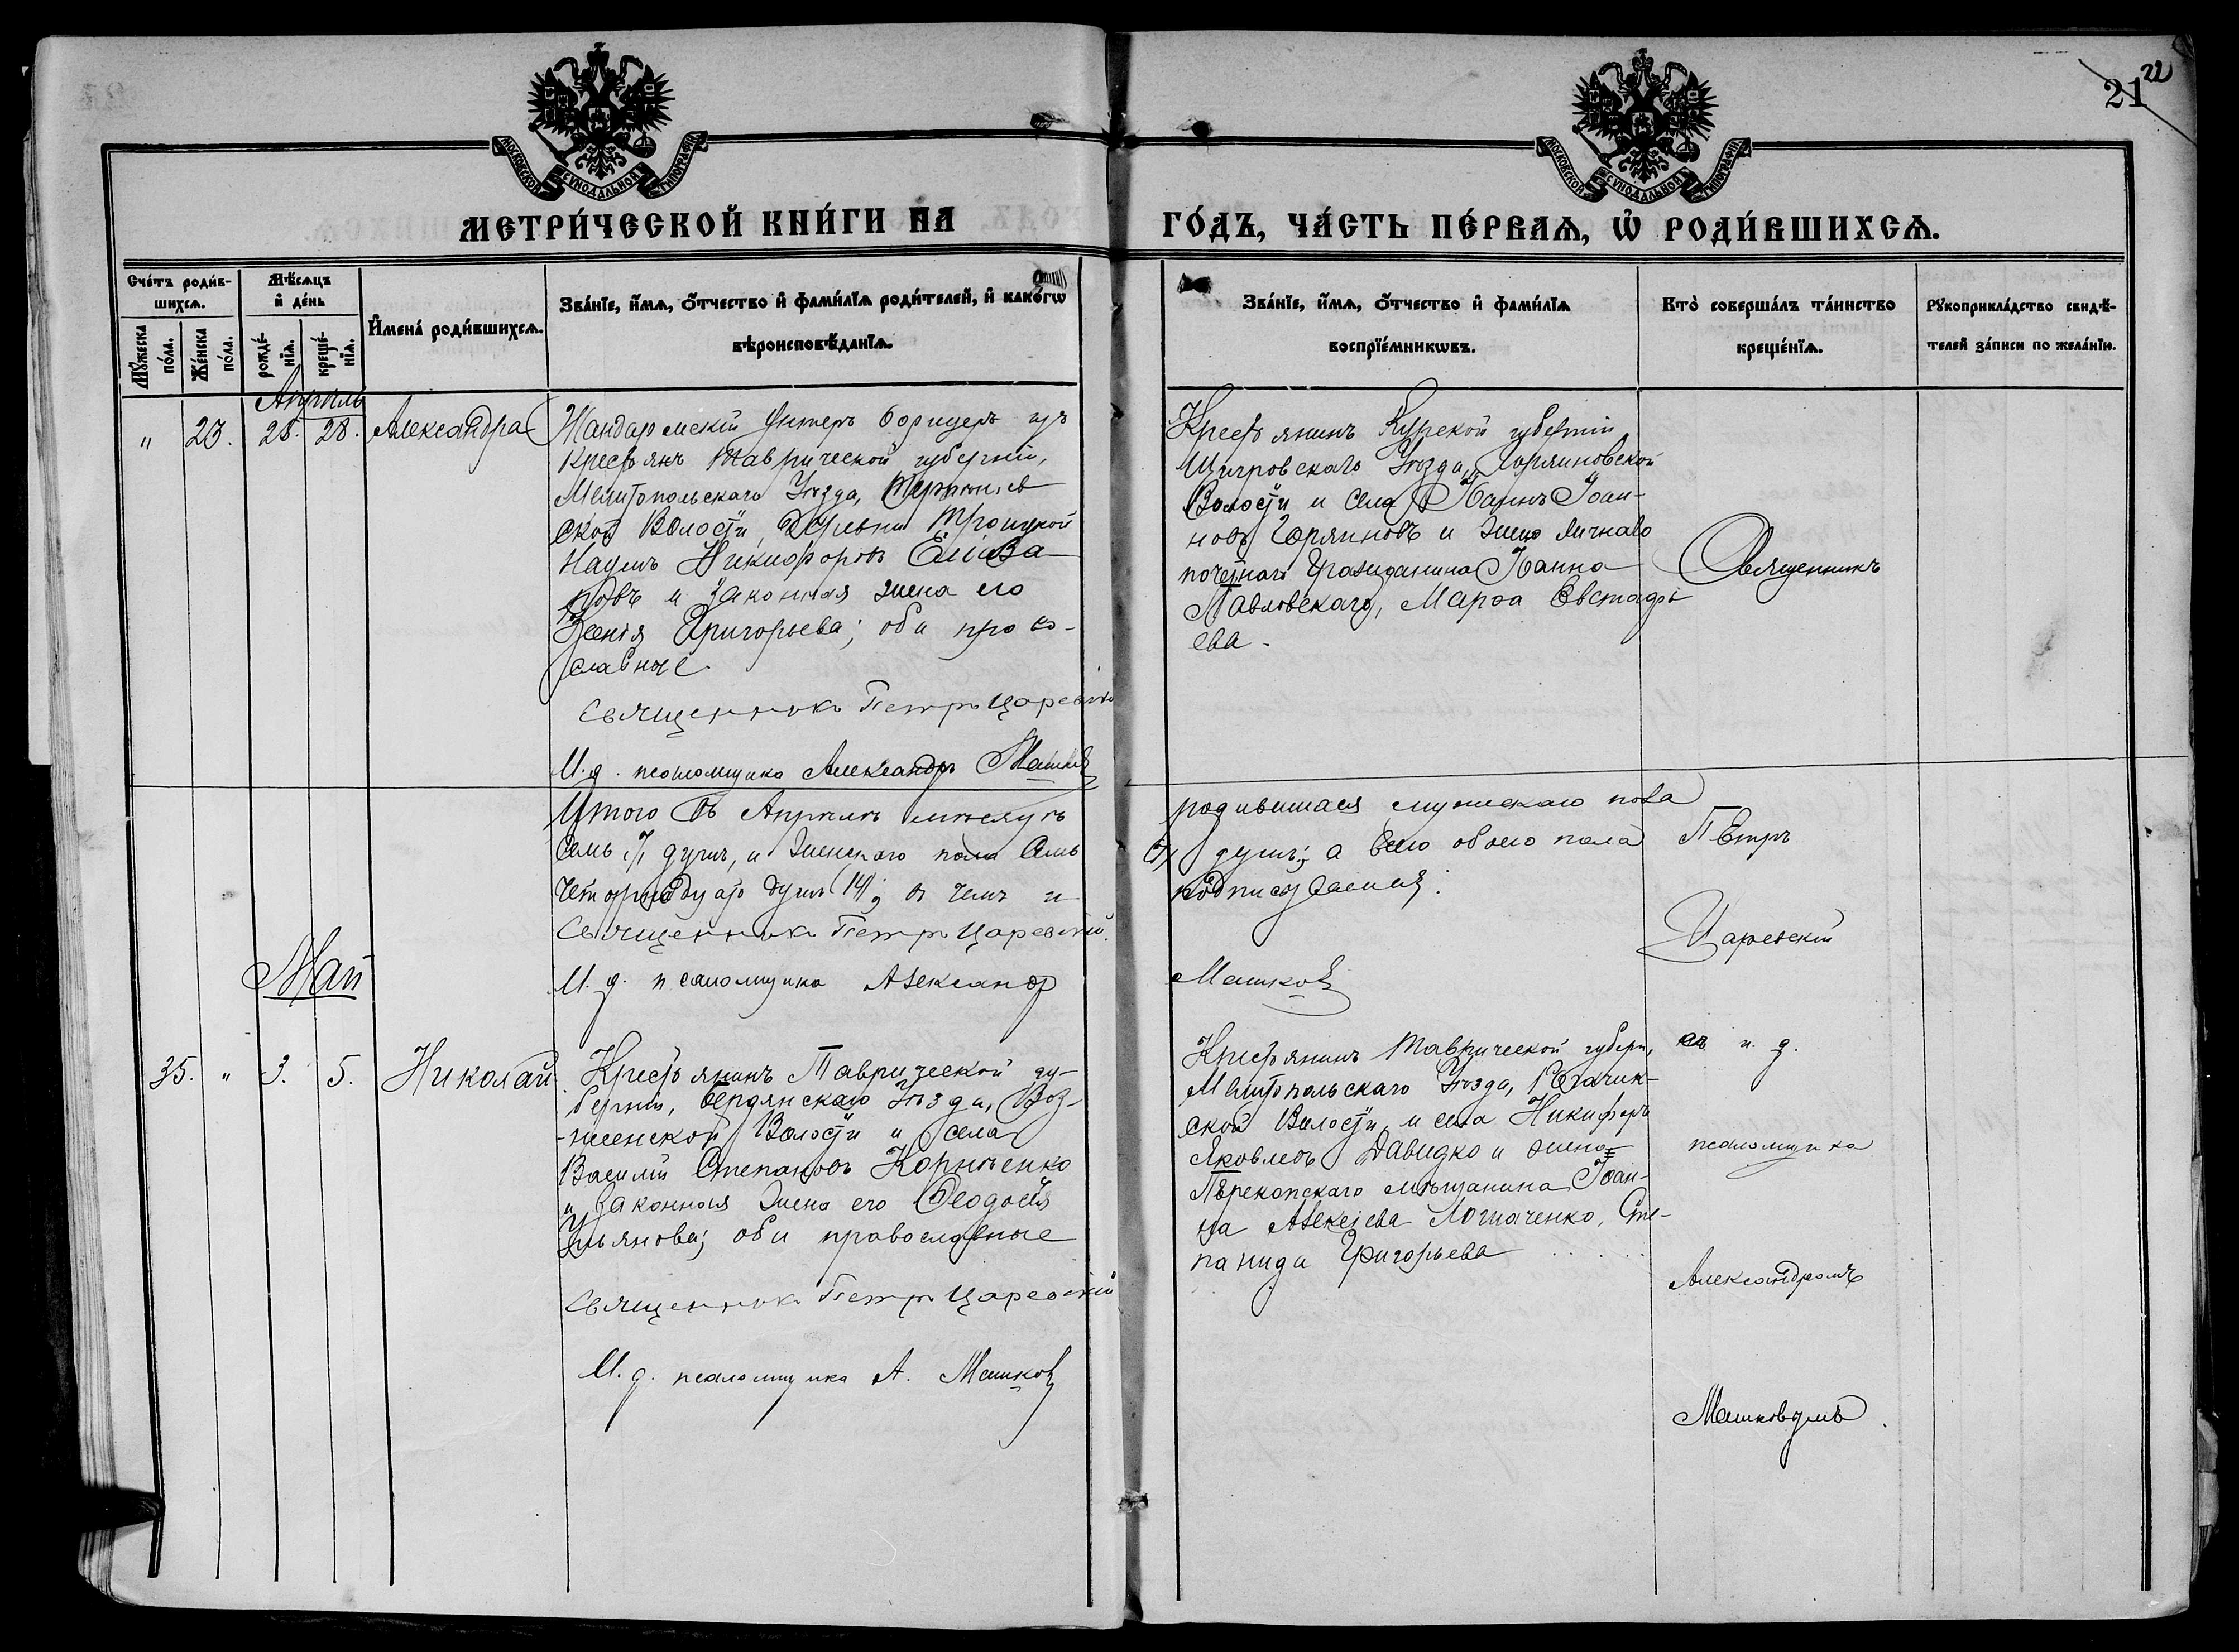 21 22
МОСКОВСКОЙ СѴНОДАЛЬНОЙ ТИПОГРАФІИ
МОСКОВСКОЙ СѴНОДАЛЬНОЙ ТИПОГРАФІИ
МЕТРИ́ЧЕСКОЙ КНИ́ГИ НА ГО́ДЪ, ЧА́СТЬ ПЕ́РВАѦ, Ѡ҆ РОДИ́ВШИХСѦ.
Сче́тъ роди́в-
шихсѧ.
Мꙋ́жеска по́ла.
Же́нска по́ла.
Мѣ́сѧцъ и҆ де́нь
рожде́-нїѧ.
креще́-нїѧ.
И҆мена̀ роди́вшихсѧ.
Зва́нїе, и҆́мѧ, ѻ҆́тчество и҆ фами́лїѧ роди́телей, и҆ како́гѡ
вѣроисповѣ́данїѧ.
Зва́нїе, и҆́мѧ, ѻ҆́тчество и҆ фами́лїѧ
воспрїе́мникѡвъ.
Кто̀ соверша́лъ та́инство
креще́нїѧ.
Рꙋкоприкла́дство свидѣ́-
телей за́писи по жела́нїю.
Апрѣль
" 23. 28. 28. Александра
Жандармскій Унтеръ Офицеръ изъ
крестьянъ Таврической губерніи,
Мелитопольскаго Уѣзда,
ской Волости, деревни Троицкой
Наумъ Никифоровъ Елиза-
ровъ и законная жена его
Ксенія Григорьева; оба право-
славные.
Священникъ Петръ Царевскій
И. д. псаломщика Александръ Машковъ
Крестьянинъ Курской губерніи
Щигровскаго Уѣзда, Горяиновской
Волости и села Іоан-
новъ Горяиновъ и жена личнаго
почетнаго Гражданина
Павловскаго, Марѳа Евстафі-
ева.
Священникъ
Петръ
Царевскій
съ и. д.
псаломщика
Александромъ
Машковымъ.
Итого въ Апрѣлѣ мѣсяцѣ родившихся мужескаго пола
семь 7, душъ, и женскаго пола семь (7) душъ; а всего обоего пола
четырнадцать душъ (14); въ чемъ и подписуемся:
Священникъ Петръ Царевскій.
И. д. псаломщика Александр Машковъ
Май
35. " 3. 5. Николай
Крестьянинъ Таврической гу-
берніи, Бердянскаго Уѣзда, Воз-
несенской Волости и села
Василій Степановъ Корніенко
и законная жена его Ѳеодосія
Ульянова; оба православные
Священникъ Петръ Царевскій
И. д. псаломщика А. Машковъ
Крестьянинъ Таврической губерн,
Мелитопольскаго Уѣзда,
ской Волости и села Никифоръ
Яковлевъ Давидко и жена
Перекопскаго мѣщанина Іоан-
на Алексіева Логиаченко, Сте-
панида Григорьева . . . . .